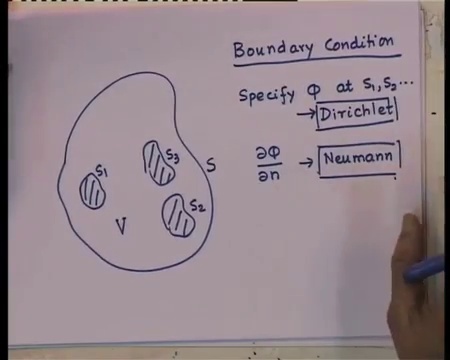 Boundary Condition
Specify Φ at S₁, S₂...
→ Dirichlet
∂Φ/∂n → Neumann
S₁
S₃
S
S₂
V